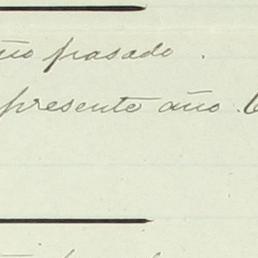 año pasado.
presente año.